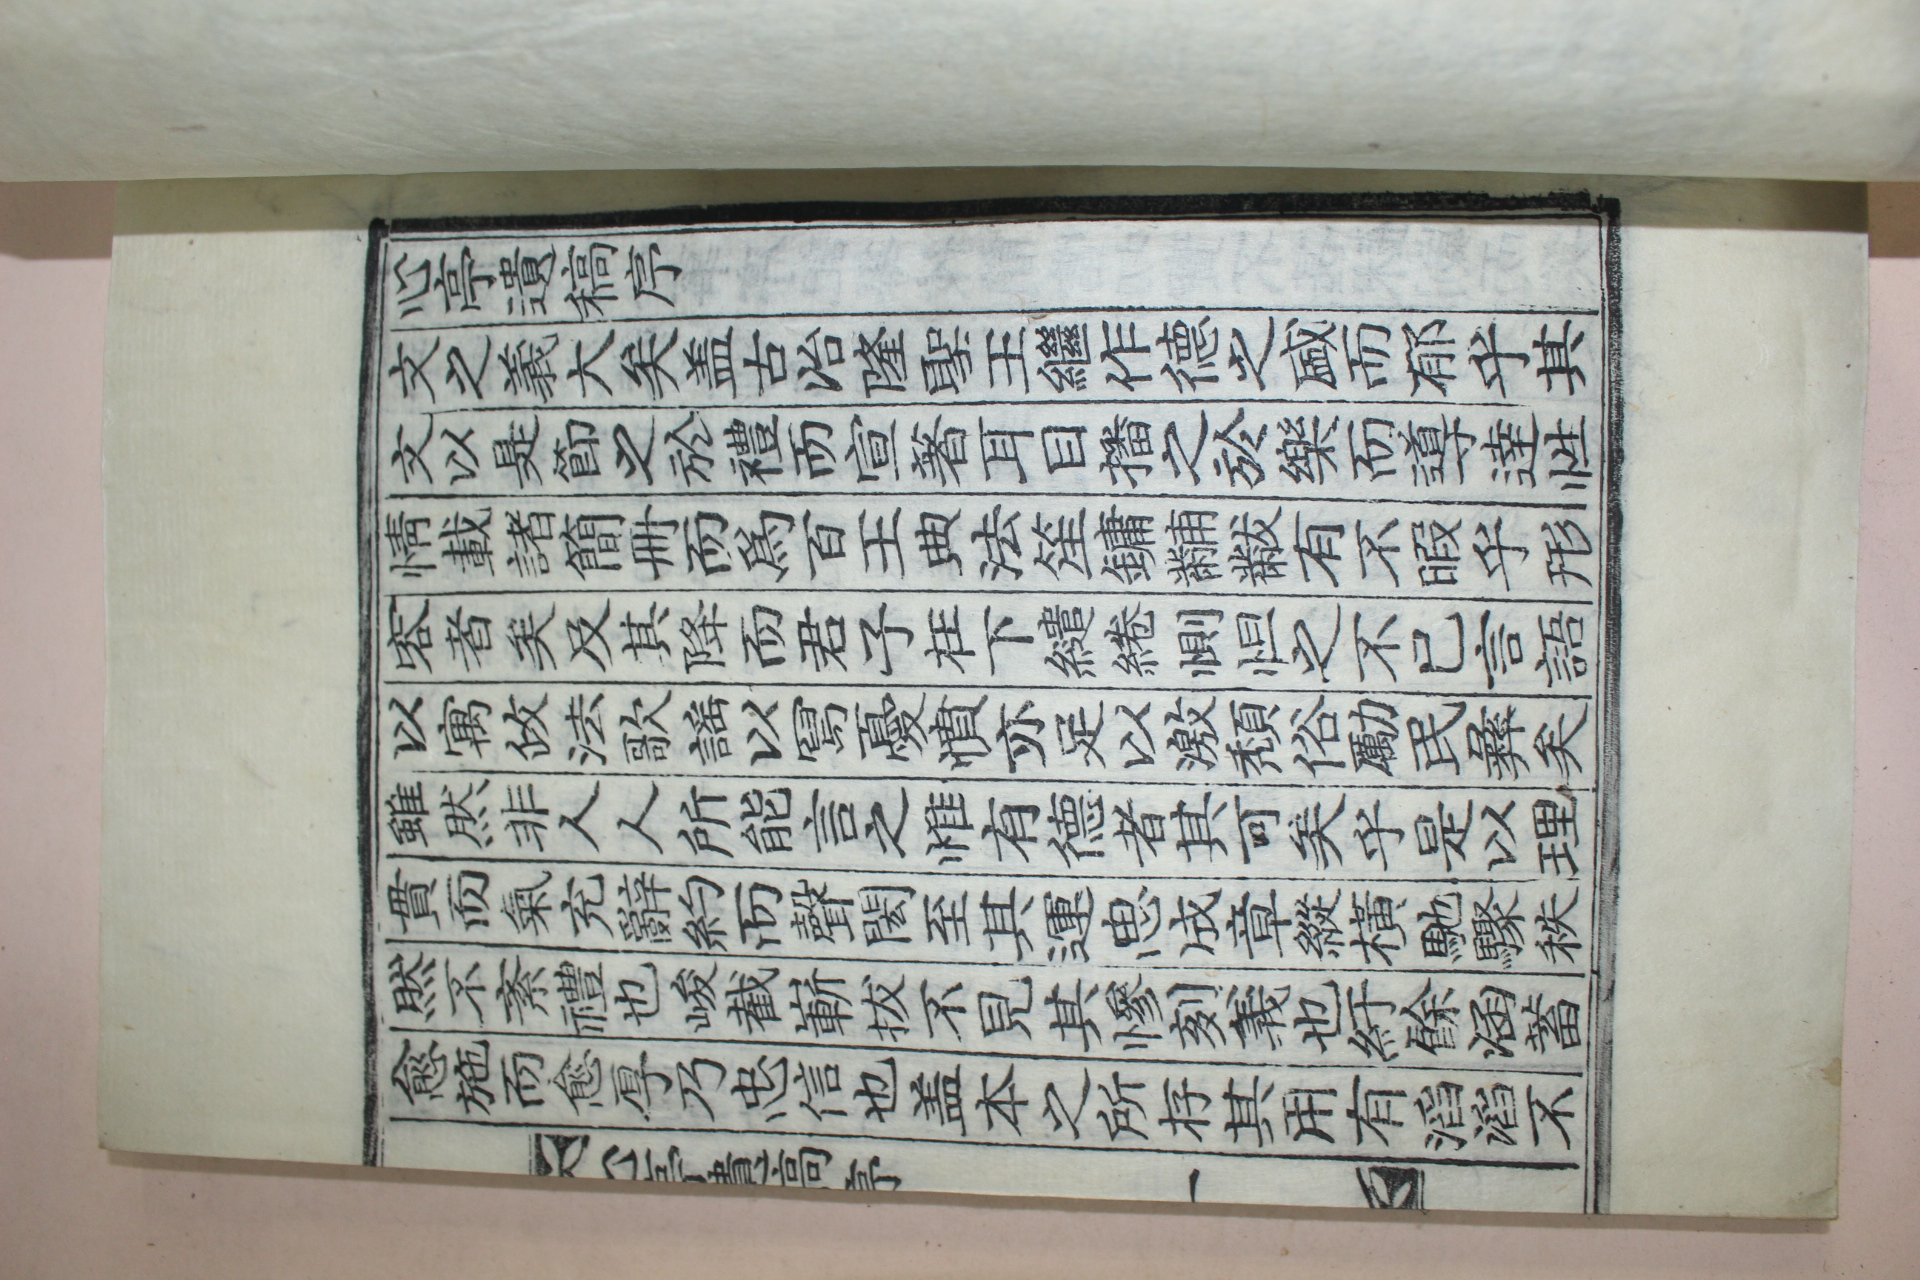 心亭遺稿序
文之義大矣盖古治隆聖王繼作德之盛而郁乎其
文以是節之於禮而宣著耳目播之於樂而導達性
情載諸簡冊而爲百王典法笙鏞黼黻有不暇乎形
容者矣及其降而君子在下繾綣惻怛之不已言語
以寓攸法歌謠以寫憂憤亦足以激頹俗勵民彝矣
雖然非人人所能言之惟有德者其可矣乎是以理
貫而氣充辭約而聲閎至其運思成章縱橫馳驟秩
然不紊禮也峻截嶄拔不見其慘刻義也紆餘涵蓄
愈施而愈厚乃忠信也盖本之所存其用有滔滔不
心亭遺稿序 一